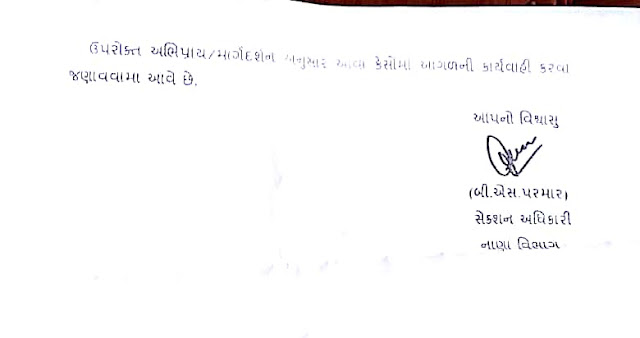 ઉપરોક્ત અભિપ્રાય/માર્ગદર્શન અનુસાર આવા કેસોમાં આગળની કાર્યવાહી કરવા
જણાવવામા આવે છે.
આપનો વિશ્વાસુ
(બી.એસ.પરમાર)
સેક્શન અધિકારી
નાણા વિભાગ